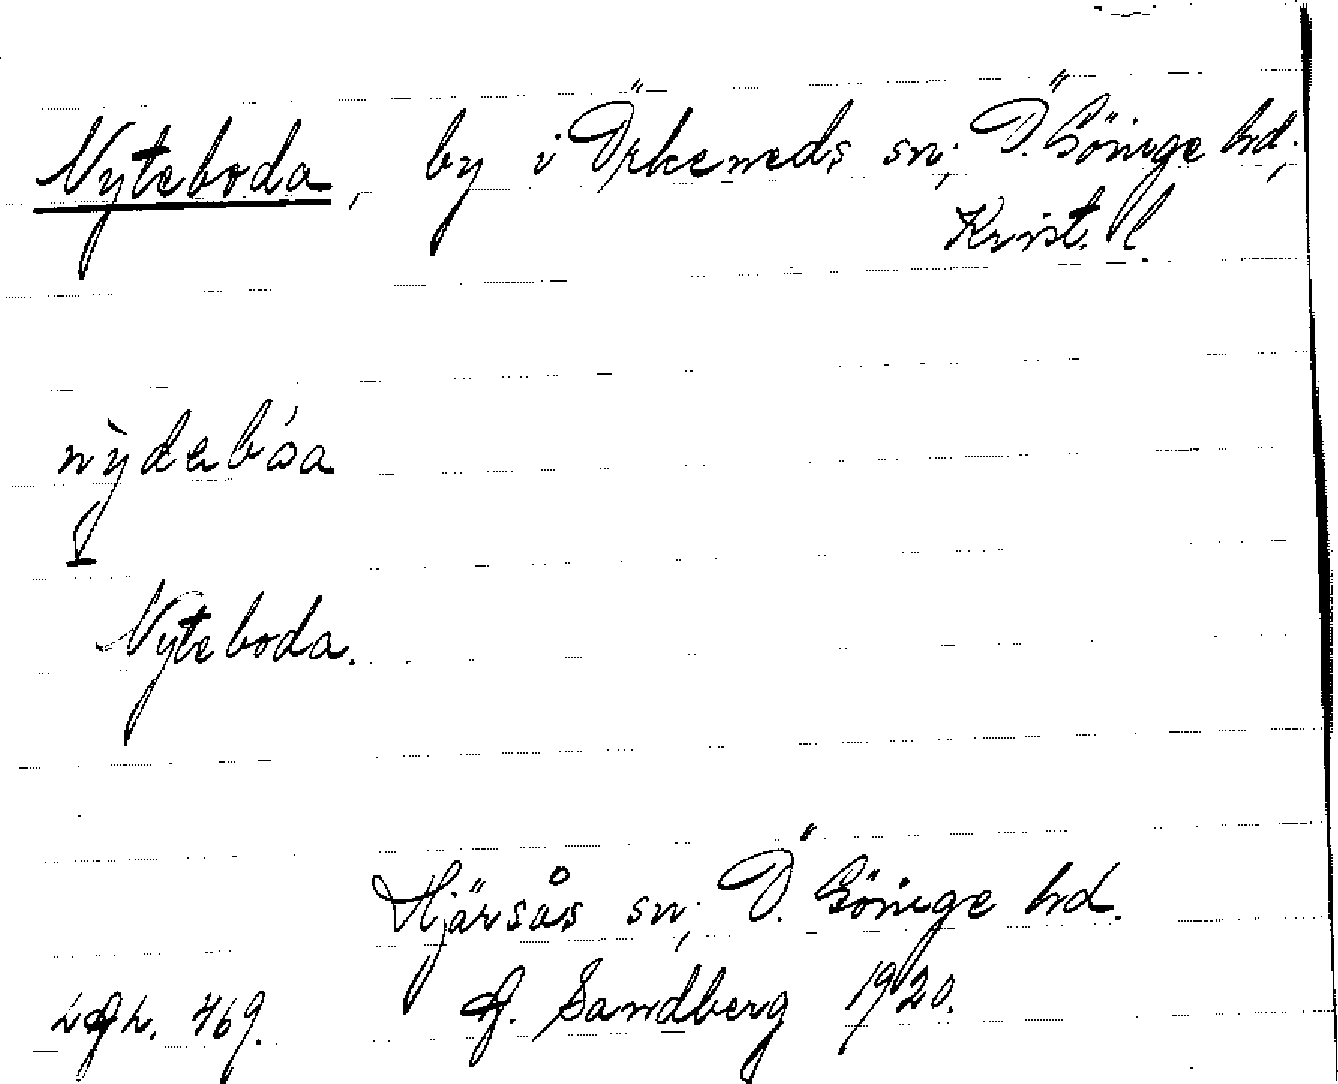 Nyteboda, by i Örkeneds sn, Ö. Göinge hd,
Krist. l.
nỳdabóa
Nyteboda.
Hjärsås sn, Ö. Göinge hd.
469. Sandberg 1920.